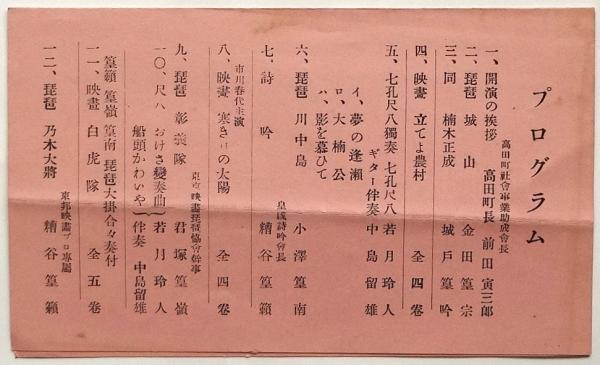 プログラム
高田町社會事業助成會長
一、開演の挨拶 高田町長 前田寅三郎
二、琵琶 城山 金田篁宗
三、同 楠木正成 城戸篁吟
四、映畫 立てよ農村 全四卷
五、七孔尺八獨奏 七孔尺八 若月玲人
ギター伴奏 中島留雄
イ、夢の逢瀬
ロ、大楠公
ハ、影を慕ひて
六、琵琶 川中島 小澤篁南
皇國詩吟會長
七、詩吟 糟谷篁籟
八、映畫 寒き日の太陽 全四卷
市川春代主演
東京映畫琵琶協會幹事
九、琵琶 彰義隊 君塚篁嶺
一〇、尺八 おけさ變奏曲 若月玲人
船頭かわいや 伴奏 中島留雄
篁籟 篁嶺 篁南 琵琶大掛合々奏付
一一、映畫 白虎隊 全五卷
東邦映畫プロ專屬
一二、琵琶 乃木大將 糟谷篁籟